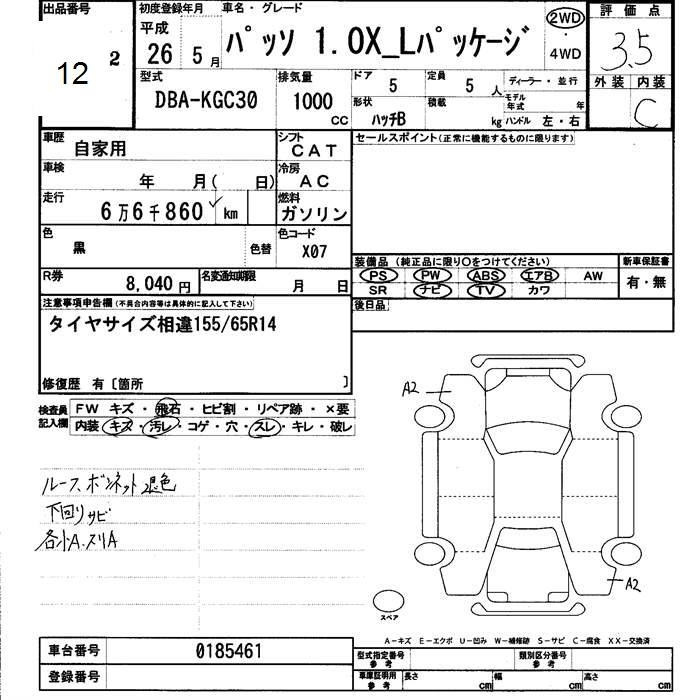 出品番号 初度登録年月 車名・グレード 評価点
12 2 平成 26 5月 パッソ 1.0X_Lパッケージ 2WD ・ 4WD 3.5
型式 排気量 ドア 5 定員 5人 ディーラー・並行 外装 内装
DBA-KGC30 1000cc 形状 ハッチB 積載 kg モデル年式 年 ハンドル 左・右 C
車歴 自家用 シフト CAT セールスポイント(正常に機能するものに限ります)
車検 年 月( 日) 冷房 AC
走行 6万6千860 km 燃料 ガソリン
色 黒 色替 色コード X07
装備品 (純正品に限り○をつけてください) 新車保証書
R券 8,040円 名変通知期限 月 日 PS PW ABS エアB AW 有・無
SR ナビ TV カワ
注意事項申告欄(不具合内容等は具体的に記入して下さい) 後日品
タイヤサイズ相違155/65R14
修復歴 有〔箇所 〕
検査員記入欄 FW キズ・飛石・ヒビ割・リペア跡・×要
内装・キズ・汚レ・コゲ・穴・スレ・キレ・破レ
A2
ルーフ、ボンネット退色
下回りサビ
各小A.ヌリA
A2
スペア
A-キズ E-エクボ U-凹み W-補修跡 S-サビ C-腐食 XX-交換済
車台番号 0185461 型式指定番号 参考 類別区分番号 参考
登録番号 車庫証明用 参考 長さ cm 幅 cm 高さ cm